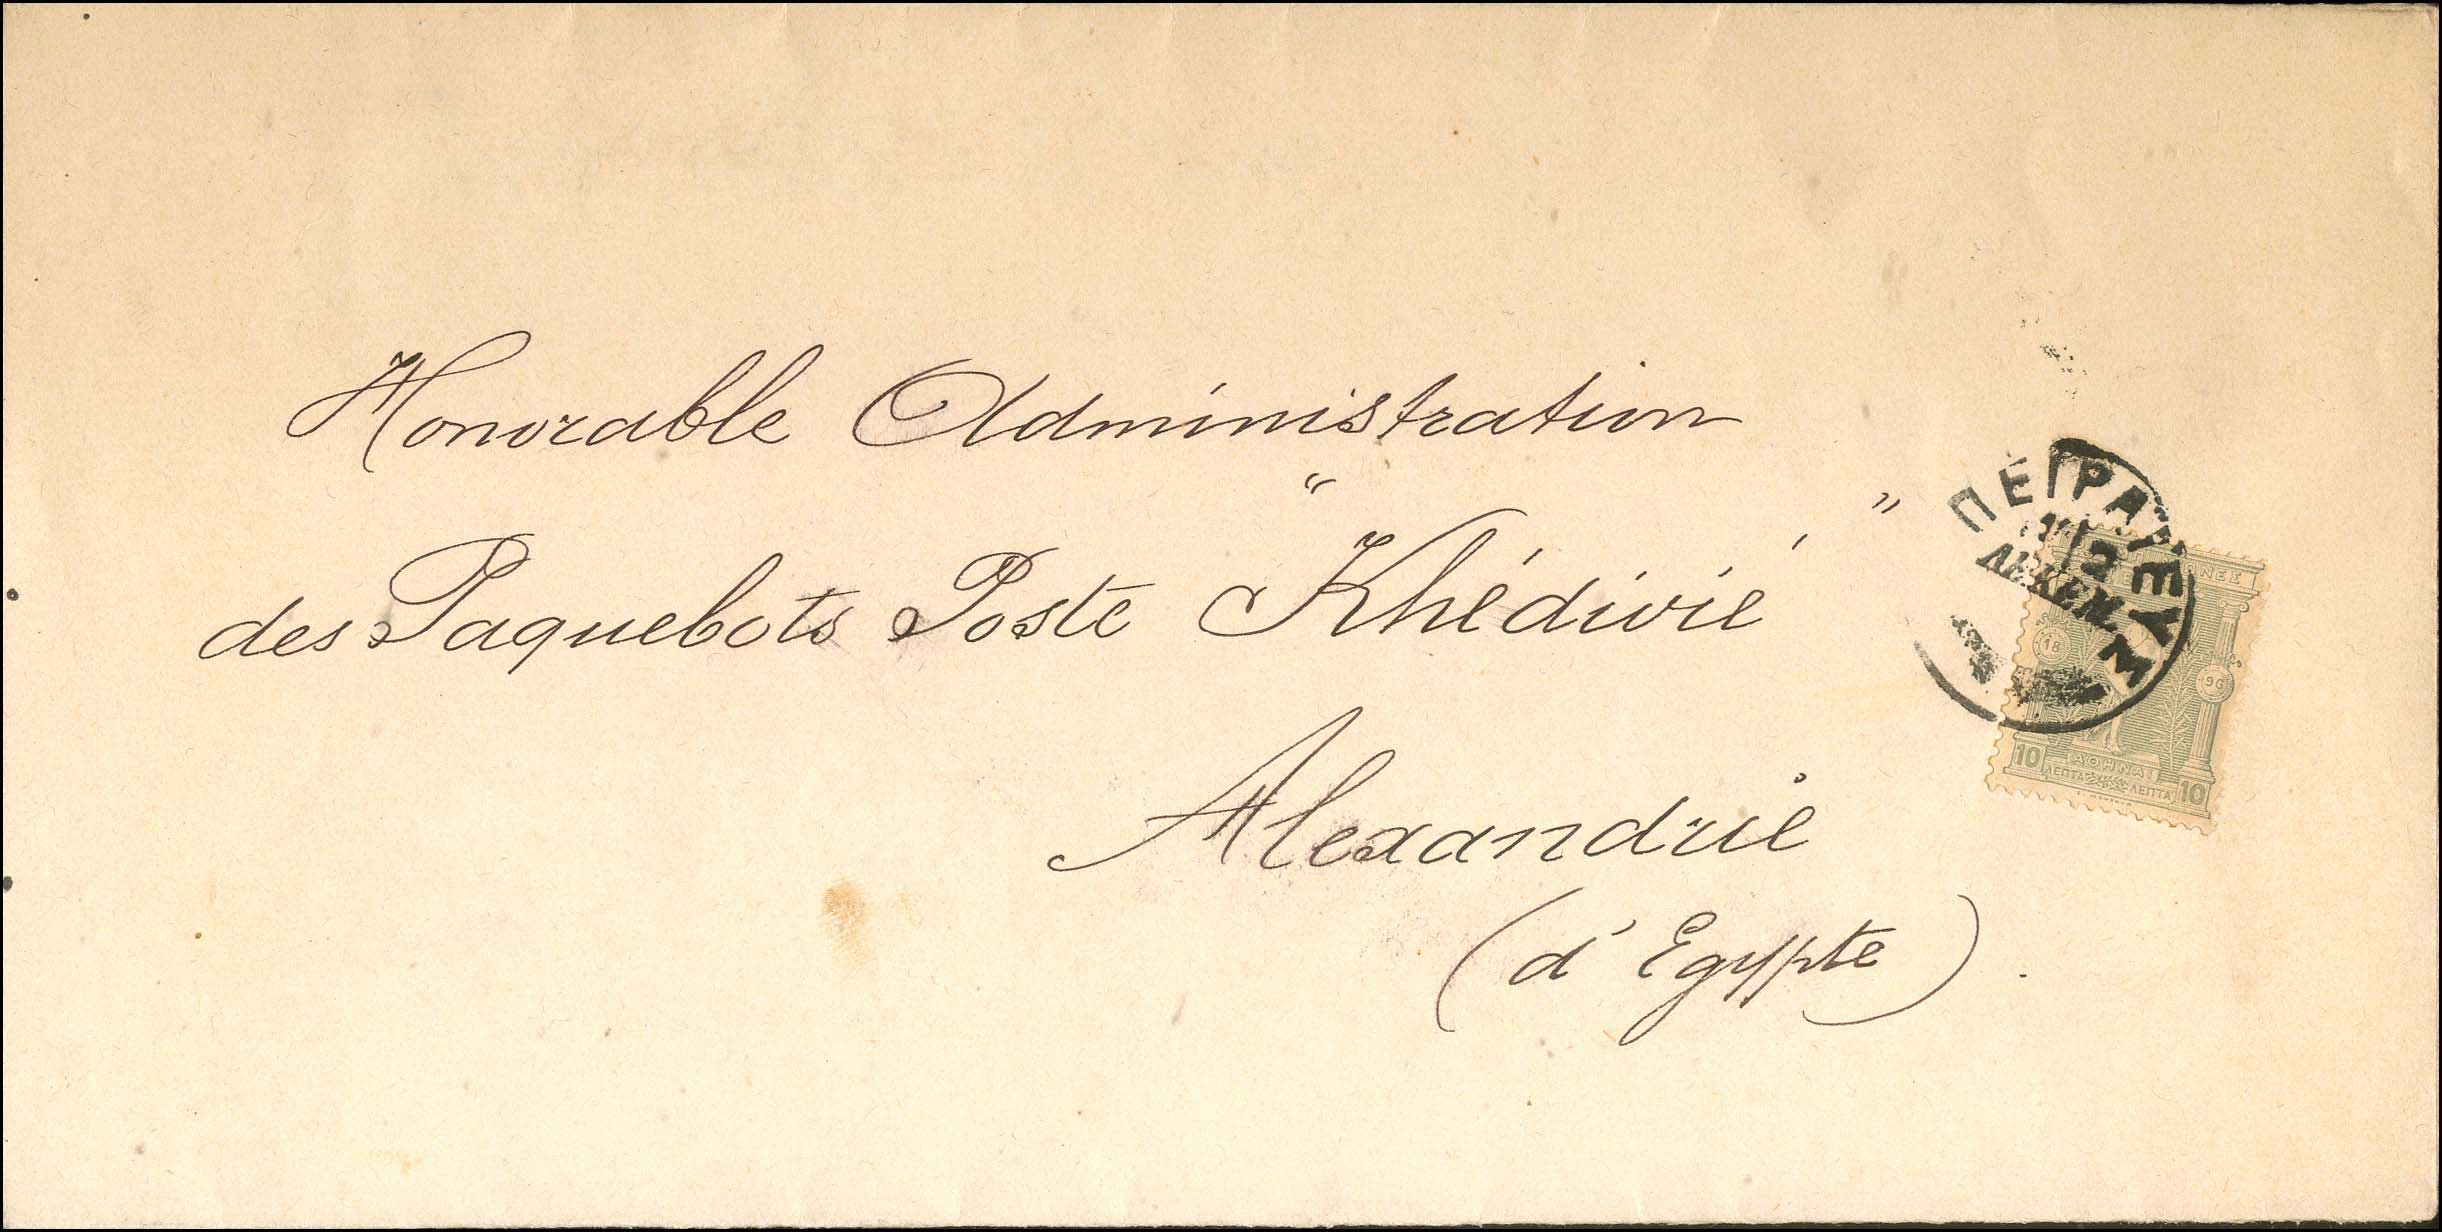 Honorable Administration
des Paquebots Poste "Khédivié"
Alexandrie
(d'Egypte).
ΠΕΙΡΑΙΕΥΣ
2
ΔΕΚΕΜ.
18 96
10 ΑΘΗΝΑΙ 10
ΛΕΠΤΑ ΛΕΠΤΑ